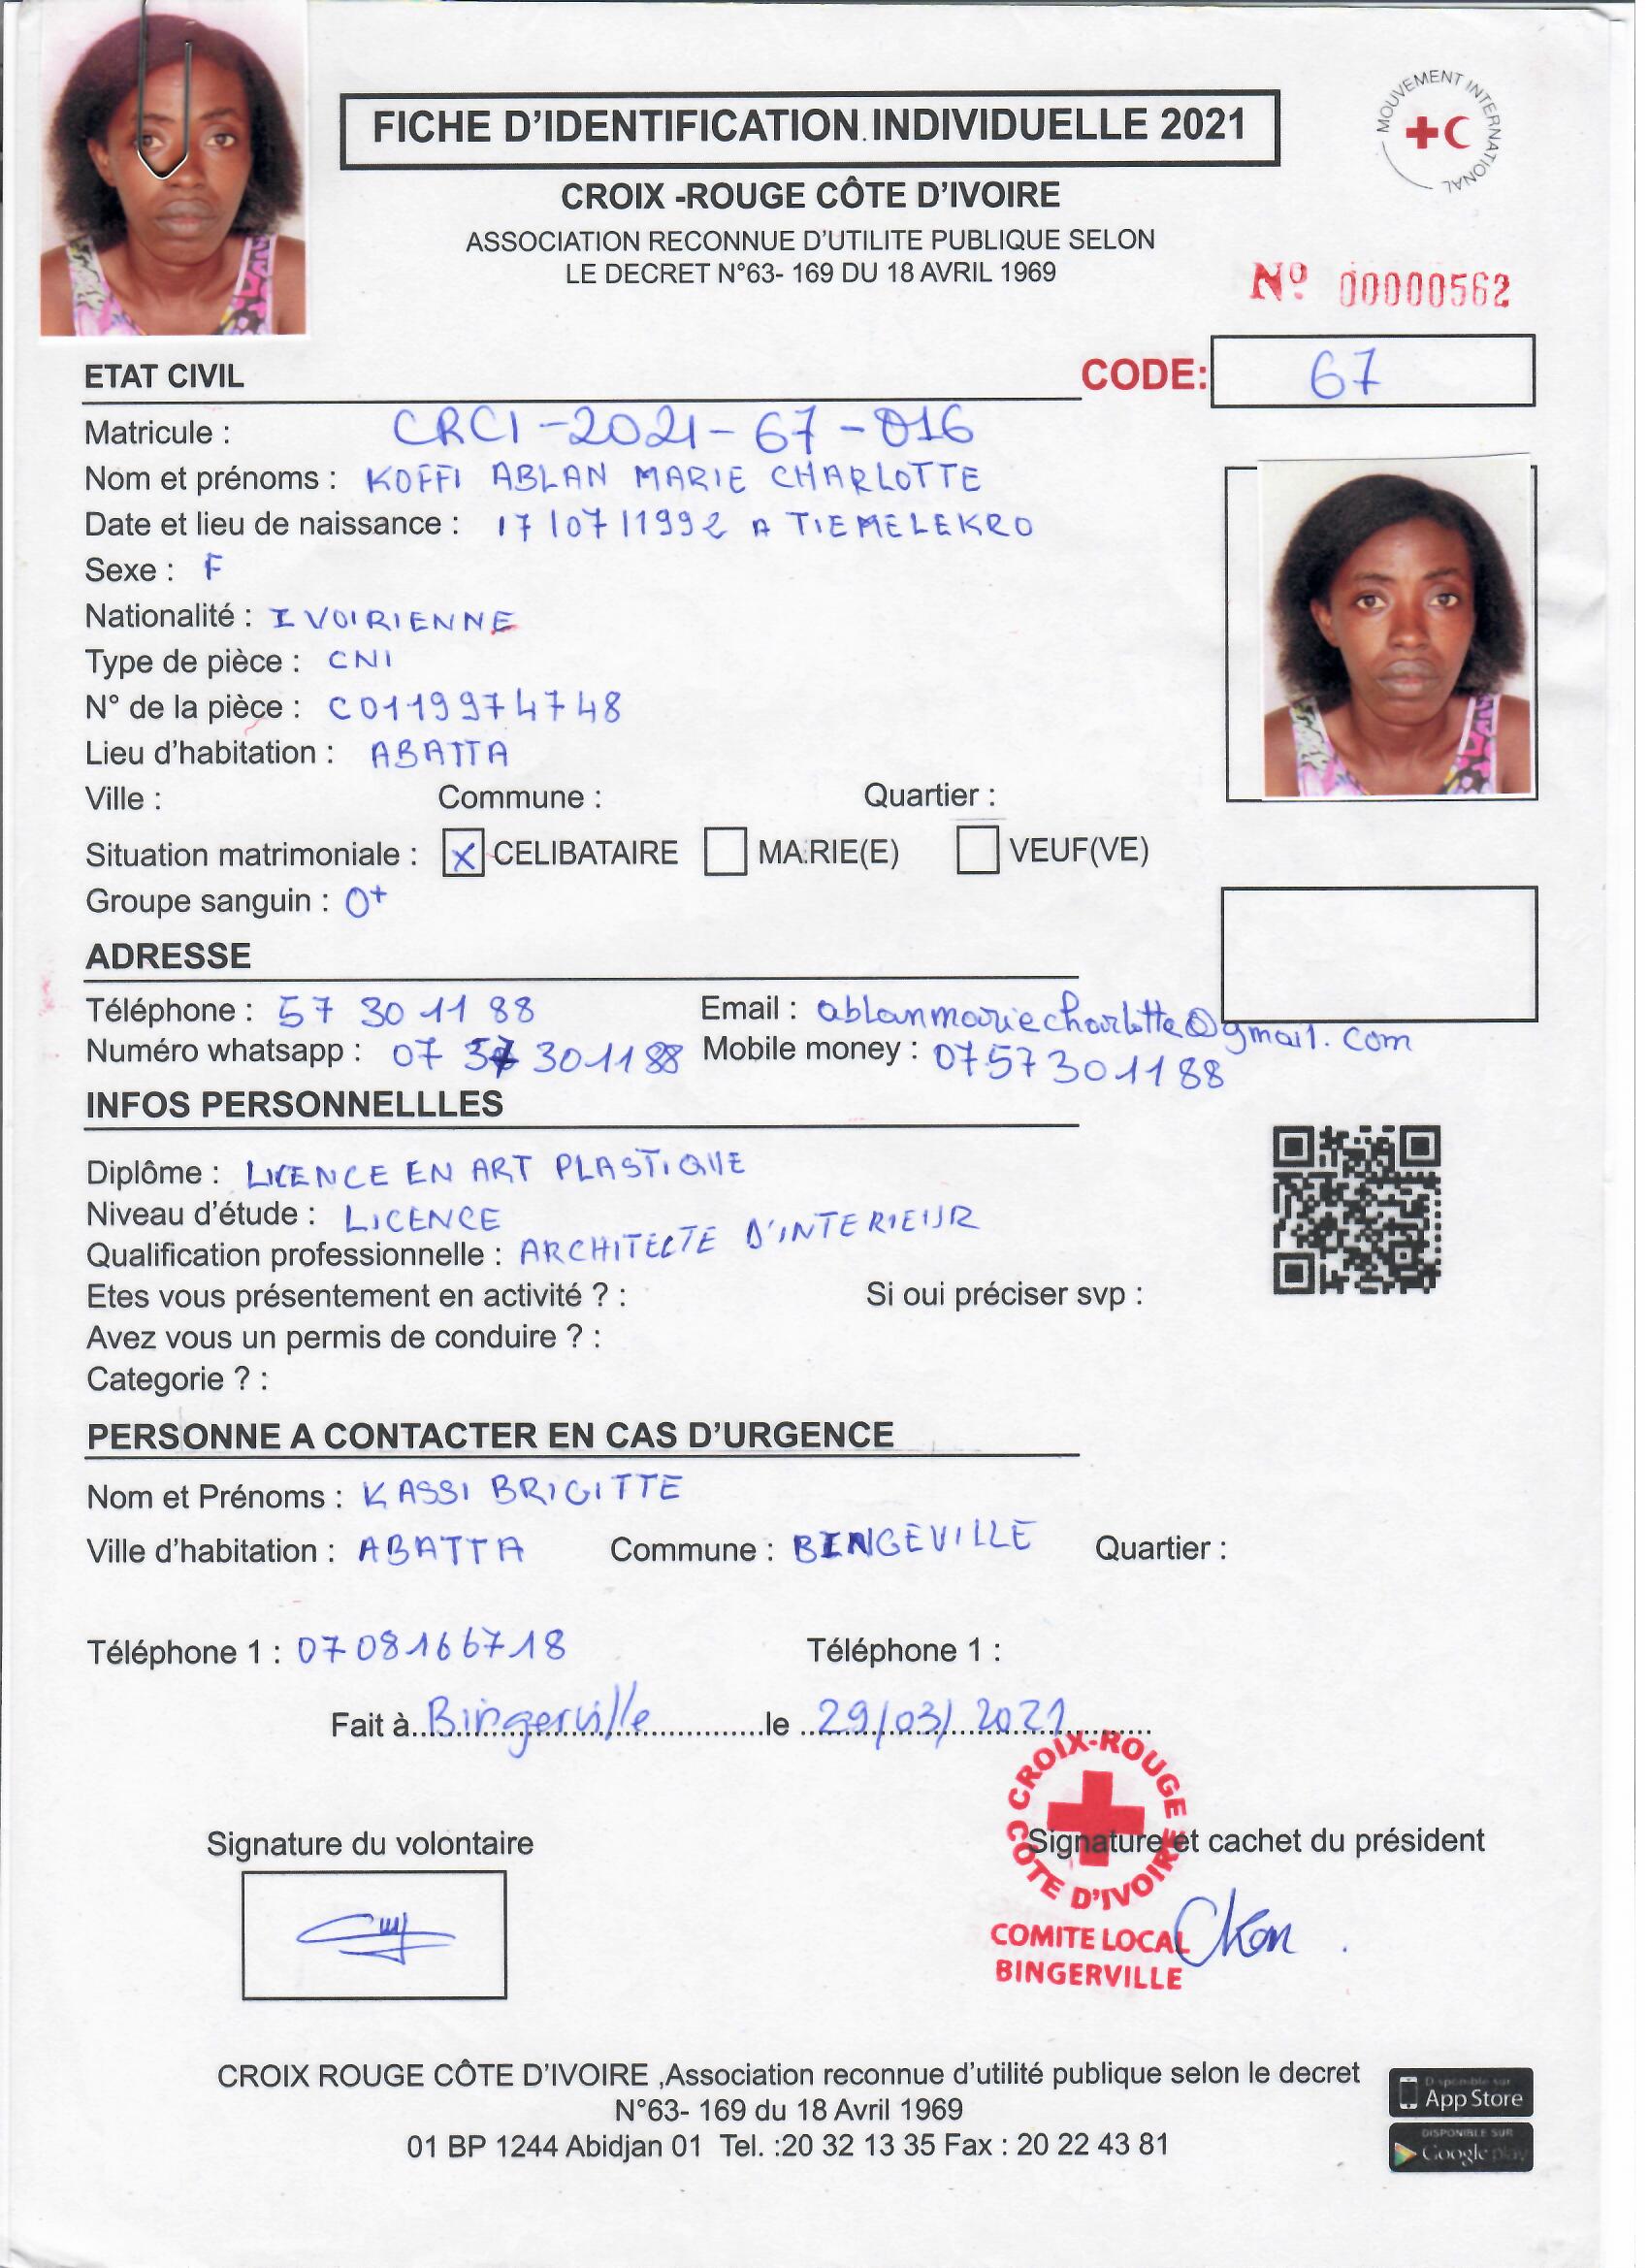 FICHE D'IDENTIFICATION INDIVIDUELLE 2021
MOUVEMENT INTERNATIONAL
CROIX -ROUGE CÔTE D'IVOIRE
ASSOCIATION RECONNUE D'UTILITE PUBLIQUE SELON
LE DECRET N°63- 169 DU 18 AVRIL 1969
Nº 00000562
ETAT CIVIL
CODE: 67
Matricule : CRCI-2021-67-016
Nom et prénoms : KOFFI ABLAN MARIE CHARLOTTE
Date et lieu de naissance : 17/07/1992 A TIEMELEKRO
Sexe : F
Nationalité : IVOIRIENNE
Type de pièce : CNI
N° de la pièce : C0119974748
Lieu d'habitation : ABATTA
Ville : Commune : Quartier :
Situation matrimoniale : X CELIBATAIRE MARIE(E) VEUF(VE)
Groupe sanguin : O+
ADRESSE
Téléphone : 57 30 11 88 Email : ablanmariecharlotte@gmail.com
Numéro whatsapp : 07 57 301188 Mobile money : 0757301188
INFOS PERSONNELLLES
Diplôme : LICENCE EN ART PLASTIQUE
Niveau d'étude : LICENCE
Qualification professionnelle : ARCHITECTE D'INTERIEUR
Etes vous présentement en activité ? : Si oui préciser svp :
Avez vous un permis de conduire ? :
Categorie ? :
PERSONNE A CONTACTER EN CAS D'URGENCE
Nom et Prénoms : KASSI BRIGITTE
Ville d'habitation : ABATTA Commune : BINGEVILLE Quartier :
Téléphone 1 : 0708166718 Téléphone 1 :
Fait à Bingerville le 29/03/2021
Signature du volontaire Signature et cachet du président
CROIX-ROUGE CÔTE D'IVOIRE
COMITE LOCAL
BINGERVILLE
CROIX ROUGE CÔTE D'IVOIRE ,Association reconnue d'utilité publique selon le decret
N°63- 169 du 18 Avril 1969
01 BP 1244 Abidjan 01 Tel. :20 32 13 35 Fax : 20 22 43 81
Disponible sur
App Store
DISPONIBLE SUR
Google play